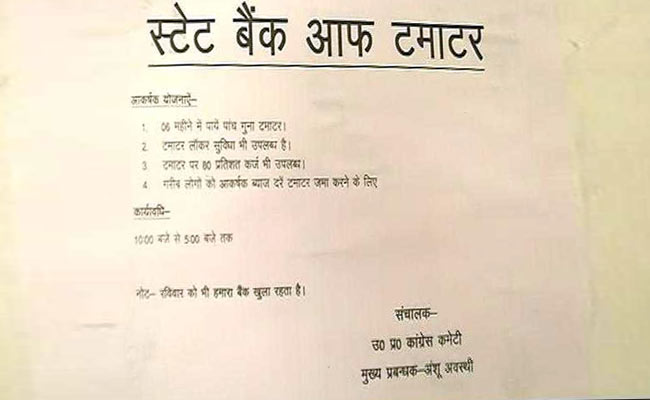 स्टेट बैंक आफ टमाटर
आकर्षक योजनाऐं–
1. 06 महीने में पायें पांच गुना टमाटर।
2. टमाटर लॉकर सुविधा भी उपलब्ध है।
3 टमाटर पर 80 प्रतिशत कर्ज भी उपलब्ध।
4 गरीब लोगों को आकर्षक ब्याज दरें टमाटर जमा करने के लिए
कार्यावधि–
10:00 बजे से 5:00 बजे तक
नोट– रविवार को भी हमारा बैंक खुला रहता है।
संचालक–
उ0 प्र0 कांग्रेस कमेटी
मुख्य प्रबन्धक–अंशू अवस्थी